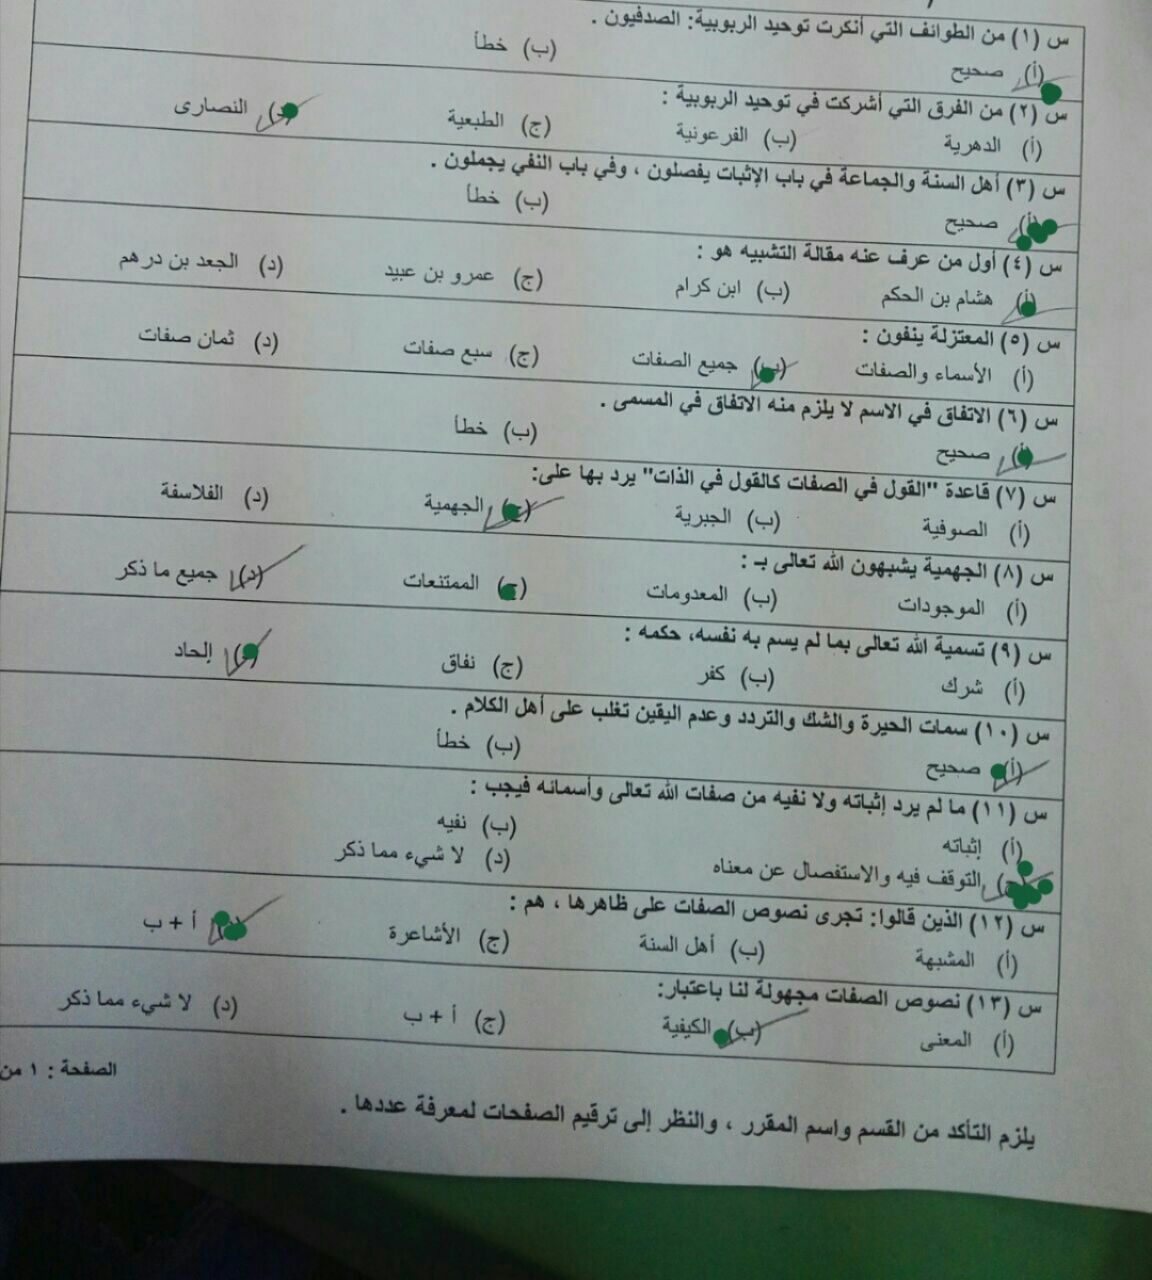 س (١) من الطوائف التي أنكرت توحيد الربوبية: الصدفيون .
(أ) صحيح (ب) خطأ
س (٢) من الفرق التي أشركت في توحيد الربوبية :
(أ) الدهرية (ب) الفرعونية (ج) الطبعية (د) النصارى
س (٣) أهل السنة والجماعة في باب الإثبات يفصلون ، وفي باب النفي يجملون .
(أ) صحيح (ب) خطأ
س (٤) أول من عرف عنه مقالة التشبيه هو :
(أ) هشام بن الحكم (ب) ابن كرام (ج) عمرو بن عبيد (د) الجعد بن درهم
س (٥) المعتزلة ينفون :
(أ) الأسماء والصفات (ب) جميع الصفات (ج) سبع صفات (د) ثمان صفات
س (٦) الاتفاق في الاسم لا يلزم منه الاتفاق في المسمى .
(أ) صحيح (ب) خطأ
س (٧) قاعدة "القول في الصفات كالقول في الذات" يرد بها على:
(أ) الصوفية (ب) الجبرية (ج) الجهمية (د) الفلاسفة
س (٨) الجهمية يشبهون الله تعالى بـ :
(أ) الموجودات (ب) المعدومات (ج) الممتنعات (د) جميع ما ذكر
س (٩) تسمية الله تعالى بما لم يسم به نفسه، حكمه :
(أ) شرك (ب) كفر (ج) نفاق (د) إلحاد
س (١٠) سمات الحيرة والشك والتردد وعدم اليقين تغلب على أهل الكلام .
(أ) صحيح (ب) خطأ
س (١١) ما لم يرد إثباته ولا نفيه من صفات الله تعالى وأسمائه فيجب :
(أ) إثباته (ب) نفيه
(ج) التوقف فيه والاستفصال عن معناه (د) لا شيء مما ذكر
س (١٢) الذين قالوا: تجرى نصوص الصفات على ظاهرها ، هم :
(أ) المشبهة (ب) أهل السنة (ج) الأشاعرة (د) أ + ب
س (١٣) نصوص الصفات مجهولة لنا باعتبار:
(أ) المعنى (ب) الكيفية (ج) أ + ب (د) لا شيء مما ذكر
الصفحة : ١ من
يلزم التأكد من القسم واسم المقرر ، والنظر إلى ترقيم الصفحات لمعرفة عددها .